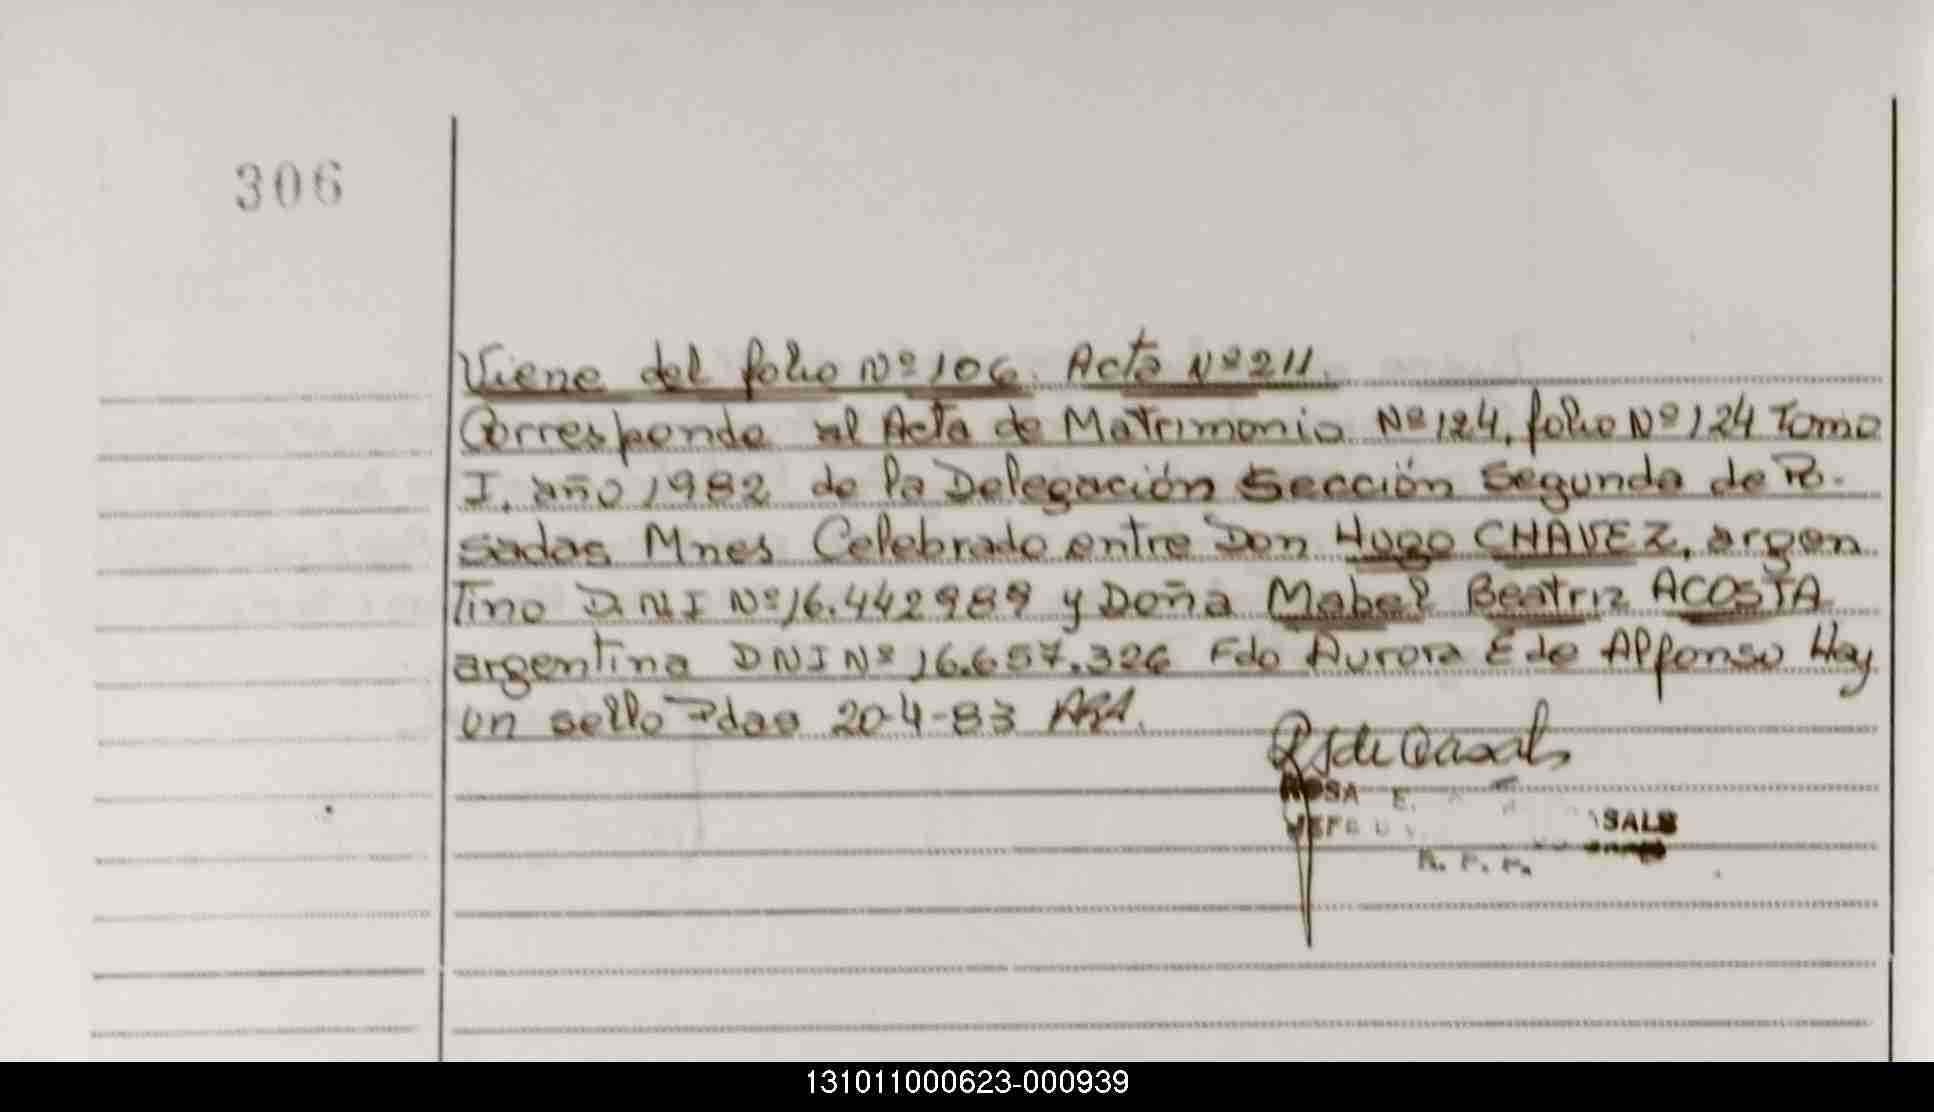 306
Viene del folio Nº 106. Acta Nº 211.
Corresponde al Acta de Matrimonio Nº 124, folio Nº 124 Tomo
I, año 1982 de la Delegación Sección Segunda de Po-
sadas Mnes Celebrado entre Don Hugo CHAVEZ, argen
tino D.N.I Nº 16.442989 y Doña Mabel Beatriz ACOSTA
argentina DNI Nº 16.657.326 Fdo Aurora E de Alfonso Hay
un sello Pdas 20-4-83
ROSA E. SALS
R. P. P.
131011000623-000939